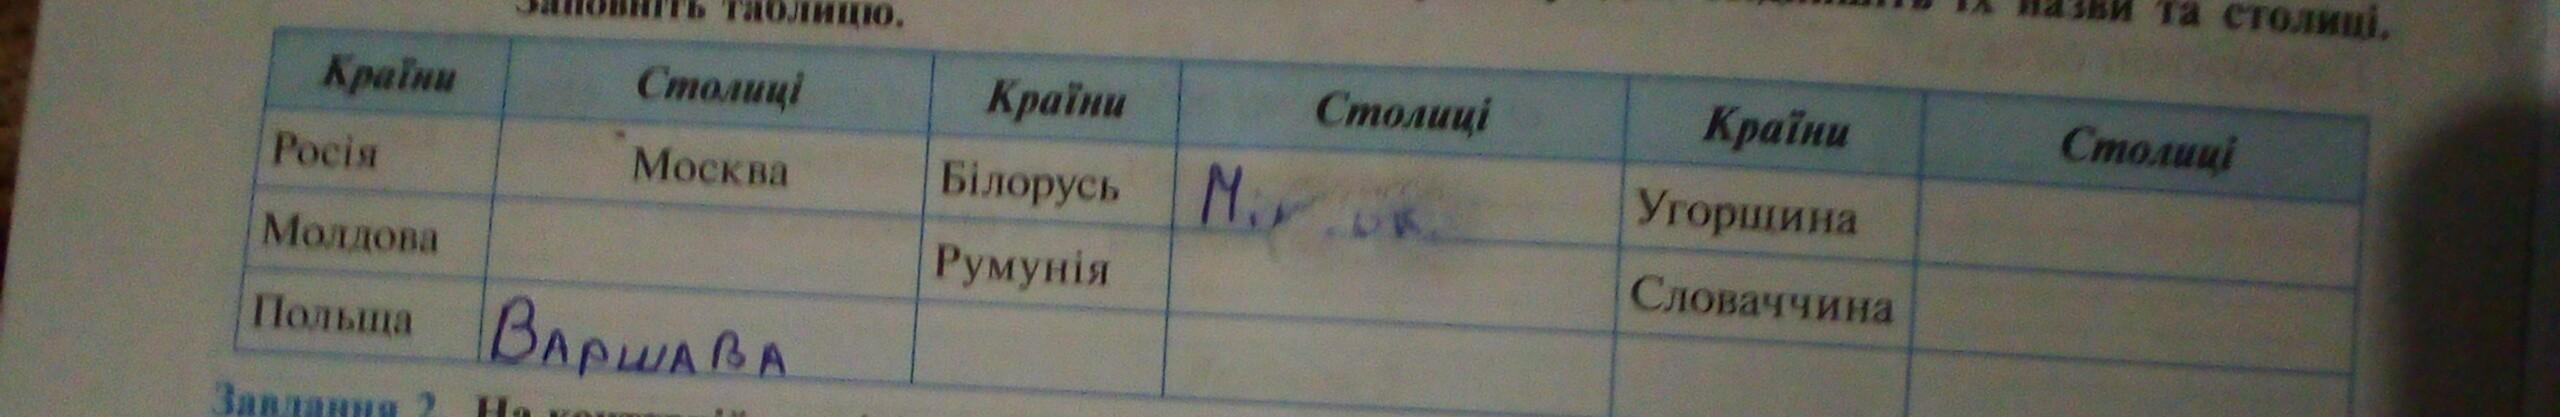 Заповніть таблицю. їх назви та столиці.
Країни Столиці Країни Столиці Країни Столиці
Росія Москва Білорусь Угорщина
Молдова Румунія Словаччина
Польща Варшава
Завдання 2. На